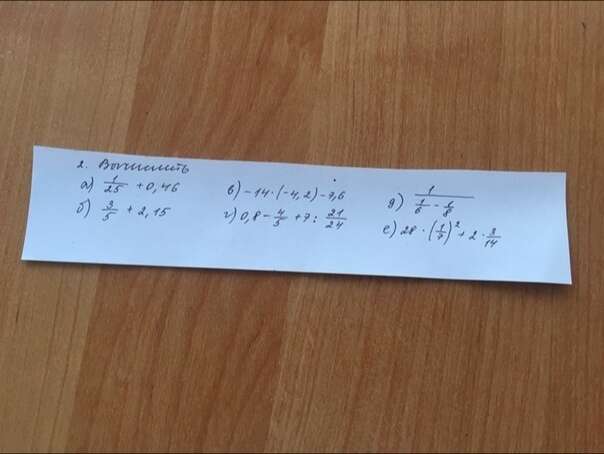 2. Вычислить
а) 1/25 + 0,46
б) 3/5 + 2,15
в) -14·(-4,2)-7,6
г) 0,8 - 4/5 + 7 : 21/24
д) 1/(1/6 - 1/8)
е) 28·(1/7)² + 2·3/14